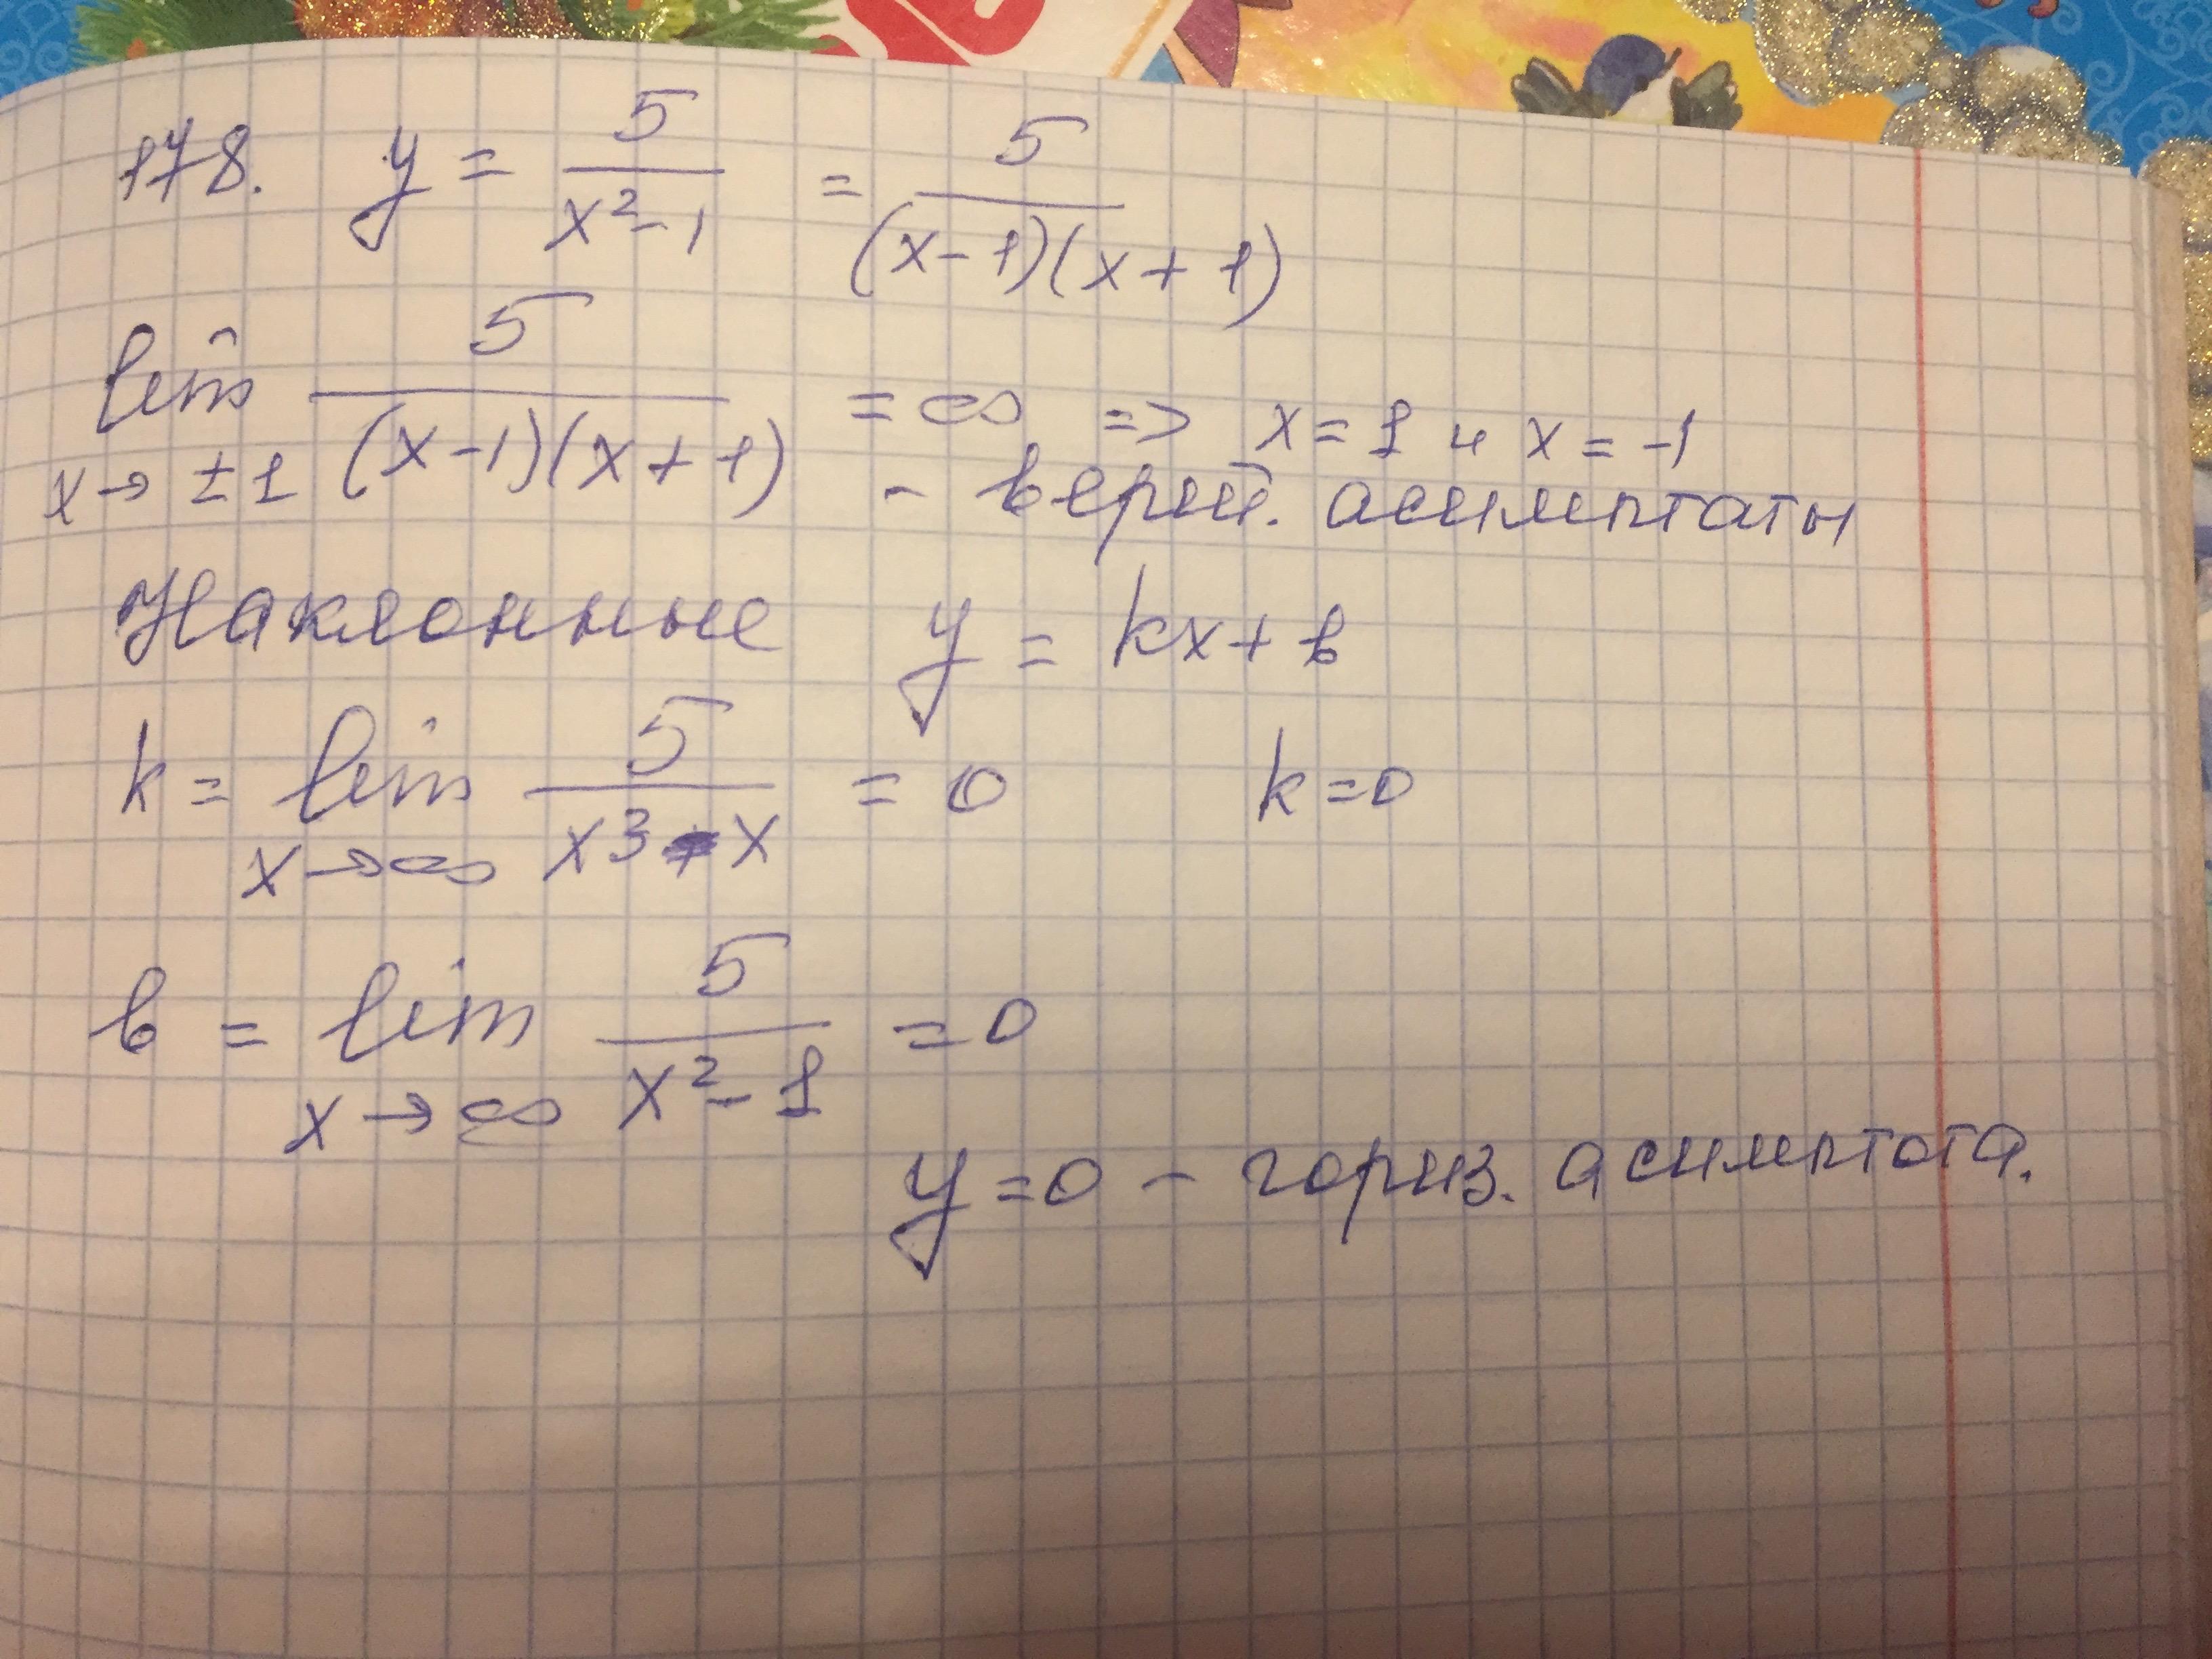 178. y = 5/(x²-1) = 5/((x-1)(x+1))
lim x→±1 5/((x-1)(x+1)) = ∞ => x=1 и x=-1
- асимптаты
Наклонные y = kx+b
k = lim x→∞ 5/(x³-x) = 0 k=0
b = lim x→∞ 5/(x²-1) = 0
y=0 - гориз. асимптота.